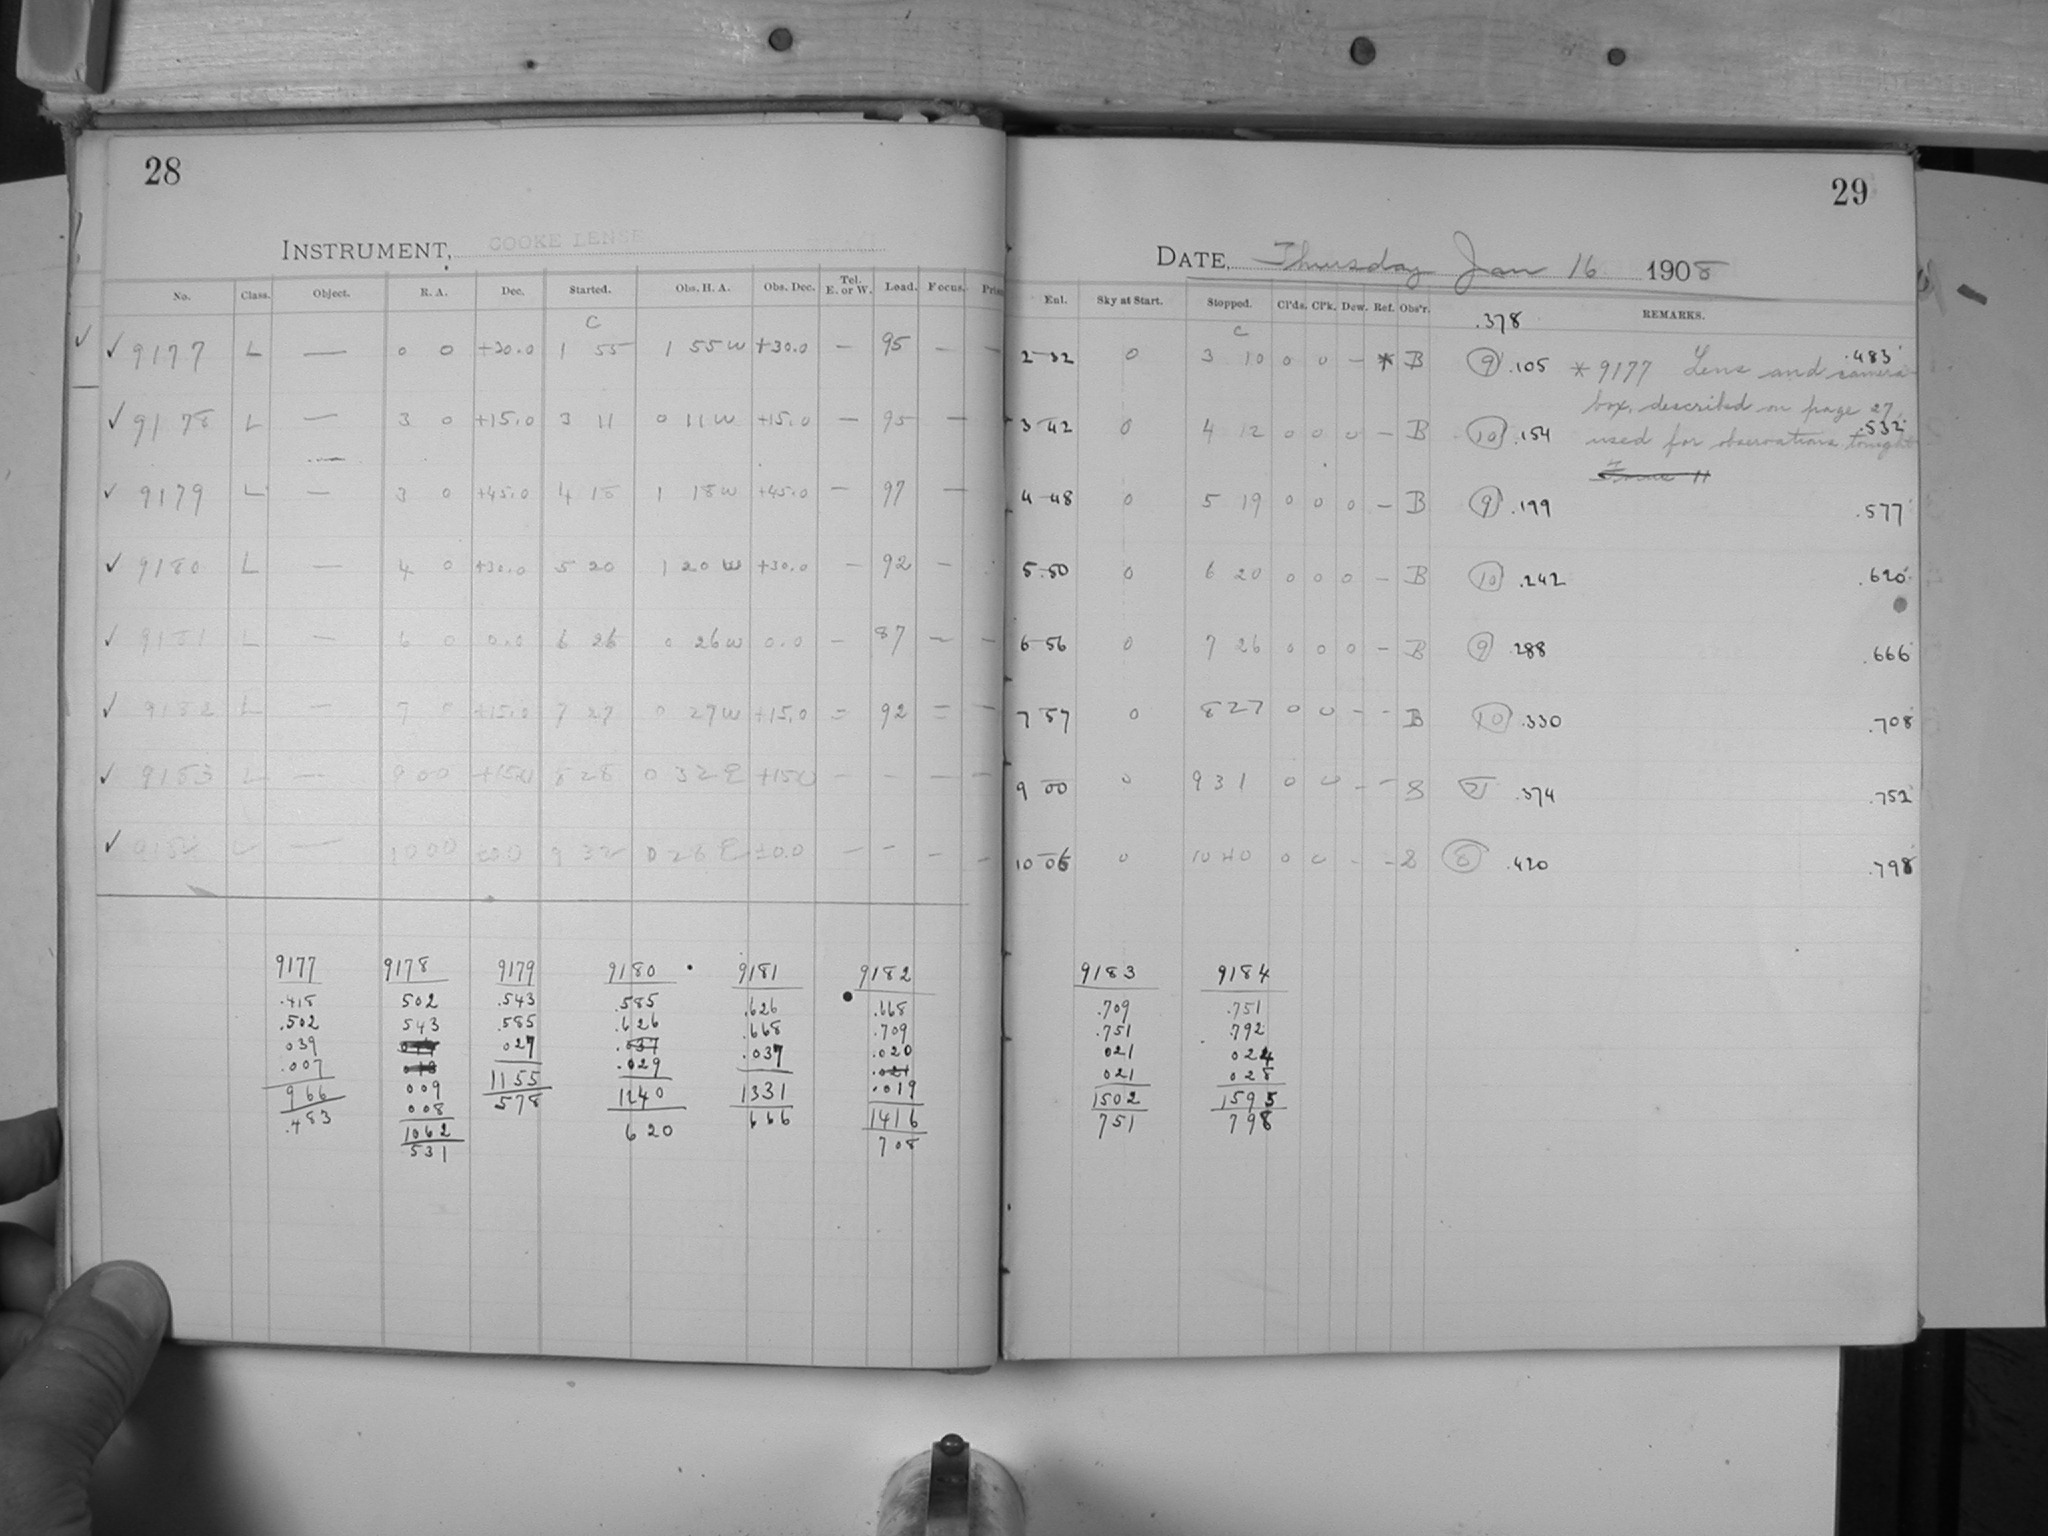 28
INSTRUMENT, COOKE LENSE
No. Class. Object. R. A. Dec. Started. Obs. H. A. Obs. Dec. Tel. E. or W. Load. Focus.
C
✓ 9177 L — 0 0 +30.0 1 55 1 55 W +30.0 — 95 — —
✓ 9178 L — 3 0 +15.0 3 11 0 11 W +15.0 — 95 —
✓ 9179 L — 3 0 +45.0 4 18 1 18 W +45.0 — 97 —
✓ 9180 L — 4 0 +30.0 5 20 1 20 W +30.0 — 92 —
✓ 9181 L — 6 0 0.0 6 26 0 26 W 0.0 — 87 — —
✓ 9182 L — 7 0 +15.0 7 27 0 27 W +15.0 = 92 = —
✓ 9183 L — 9 00 +15.0 8 28 0 32 E +15.0 — — — —
✓ L — 10 00 9 32 0 28 E ±0.0 — — — —
9177 9178 9179 9180 9181 9182
.418 502 .543 .585 .626 .668
.502 543 .585 .626 .668 .709
039 027 .037 .037 .020
.007 .029 .021
966 009 1155 1240 1331 .019
.483 008 578 620 666 1416
1062 708
531
29
DATE, Thursday Jan 16 1908
Exl. Sky at Start. Stopped. Cl'ds. Cl'k. Dew. Ref. Obs'r. REMARKS.
C .378
2-32 0 3 10 0 0 — * B 9 .105 .483
* 9177 Lens and camera
box, described on page 27,
3-42 0 4 12 0 0 0 — B 10 .154 .532
used for observations tonight
4-48 0 5 19 0 0 0 — B 9 .199 .577
5-50 0 6 20 0 0 0 — B 10 .242 .620
6-56 0 7 26 0 0 0 — B 9 .288 .666
7-57 0 8 27 0 0 - - B 10 .330 .708
9-00 0 9 31 0 0 - - S .374 .752
10-06 0 10 40 0 0 - - S 8 .420 .798
9183 9184
.709 .751
.751 .792
021 024
021 028
1502 1595
751 798